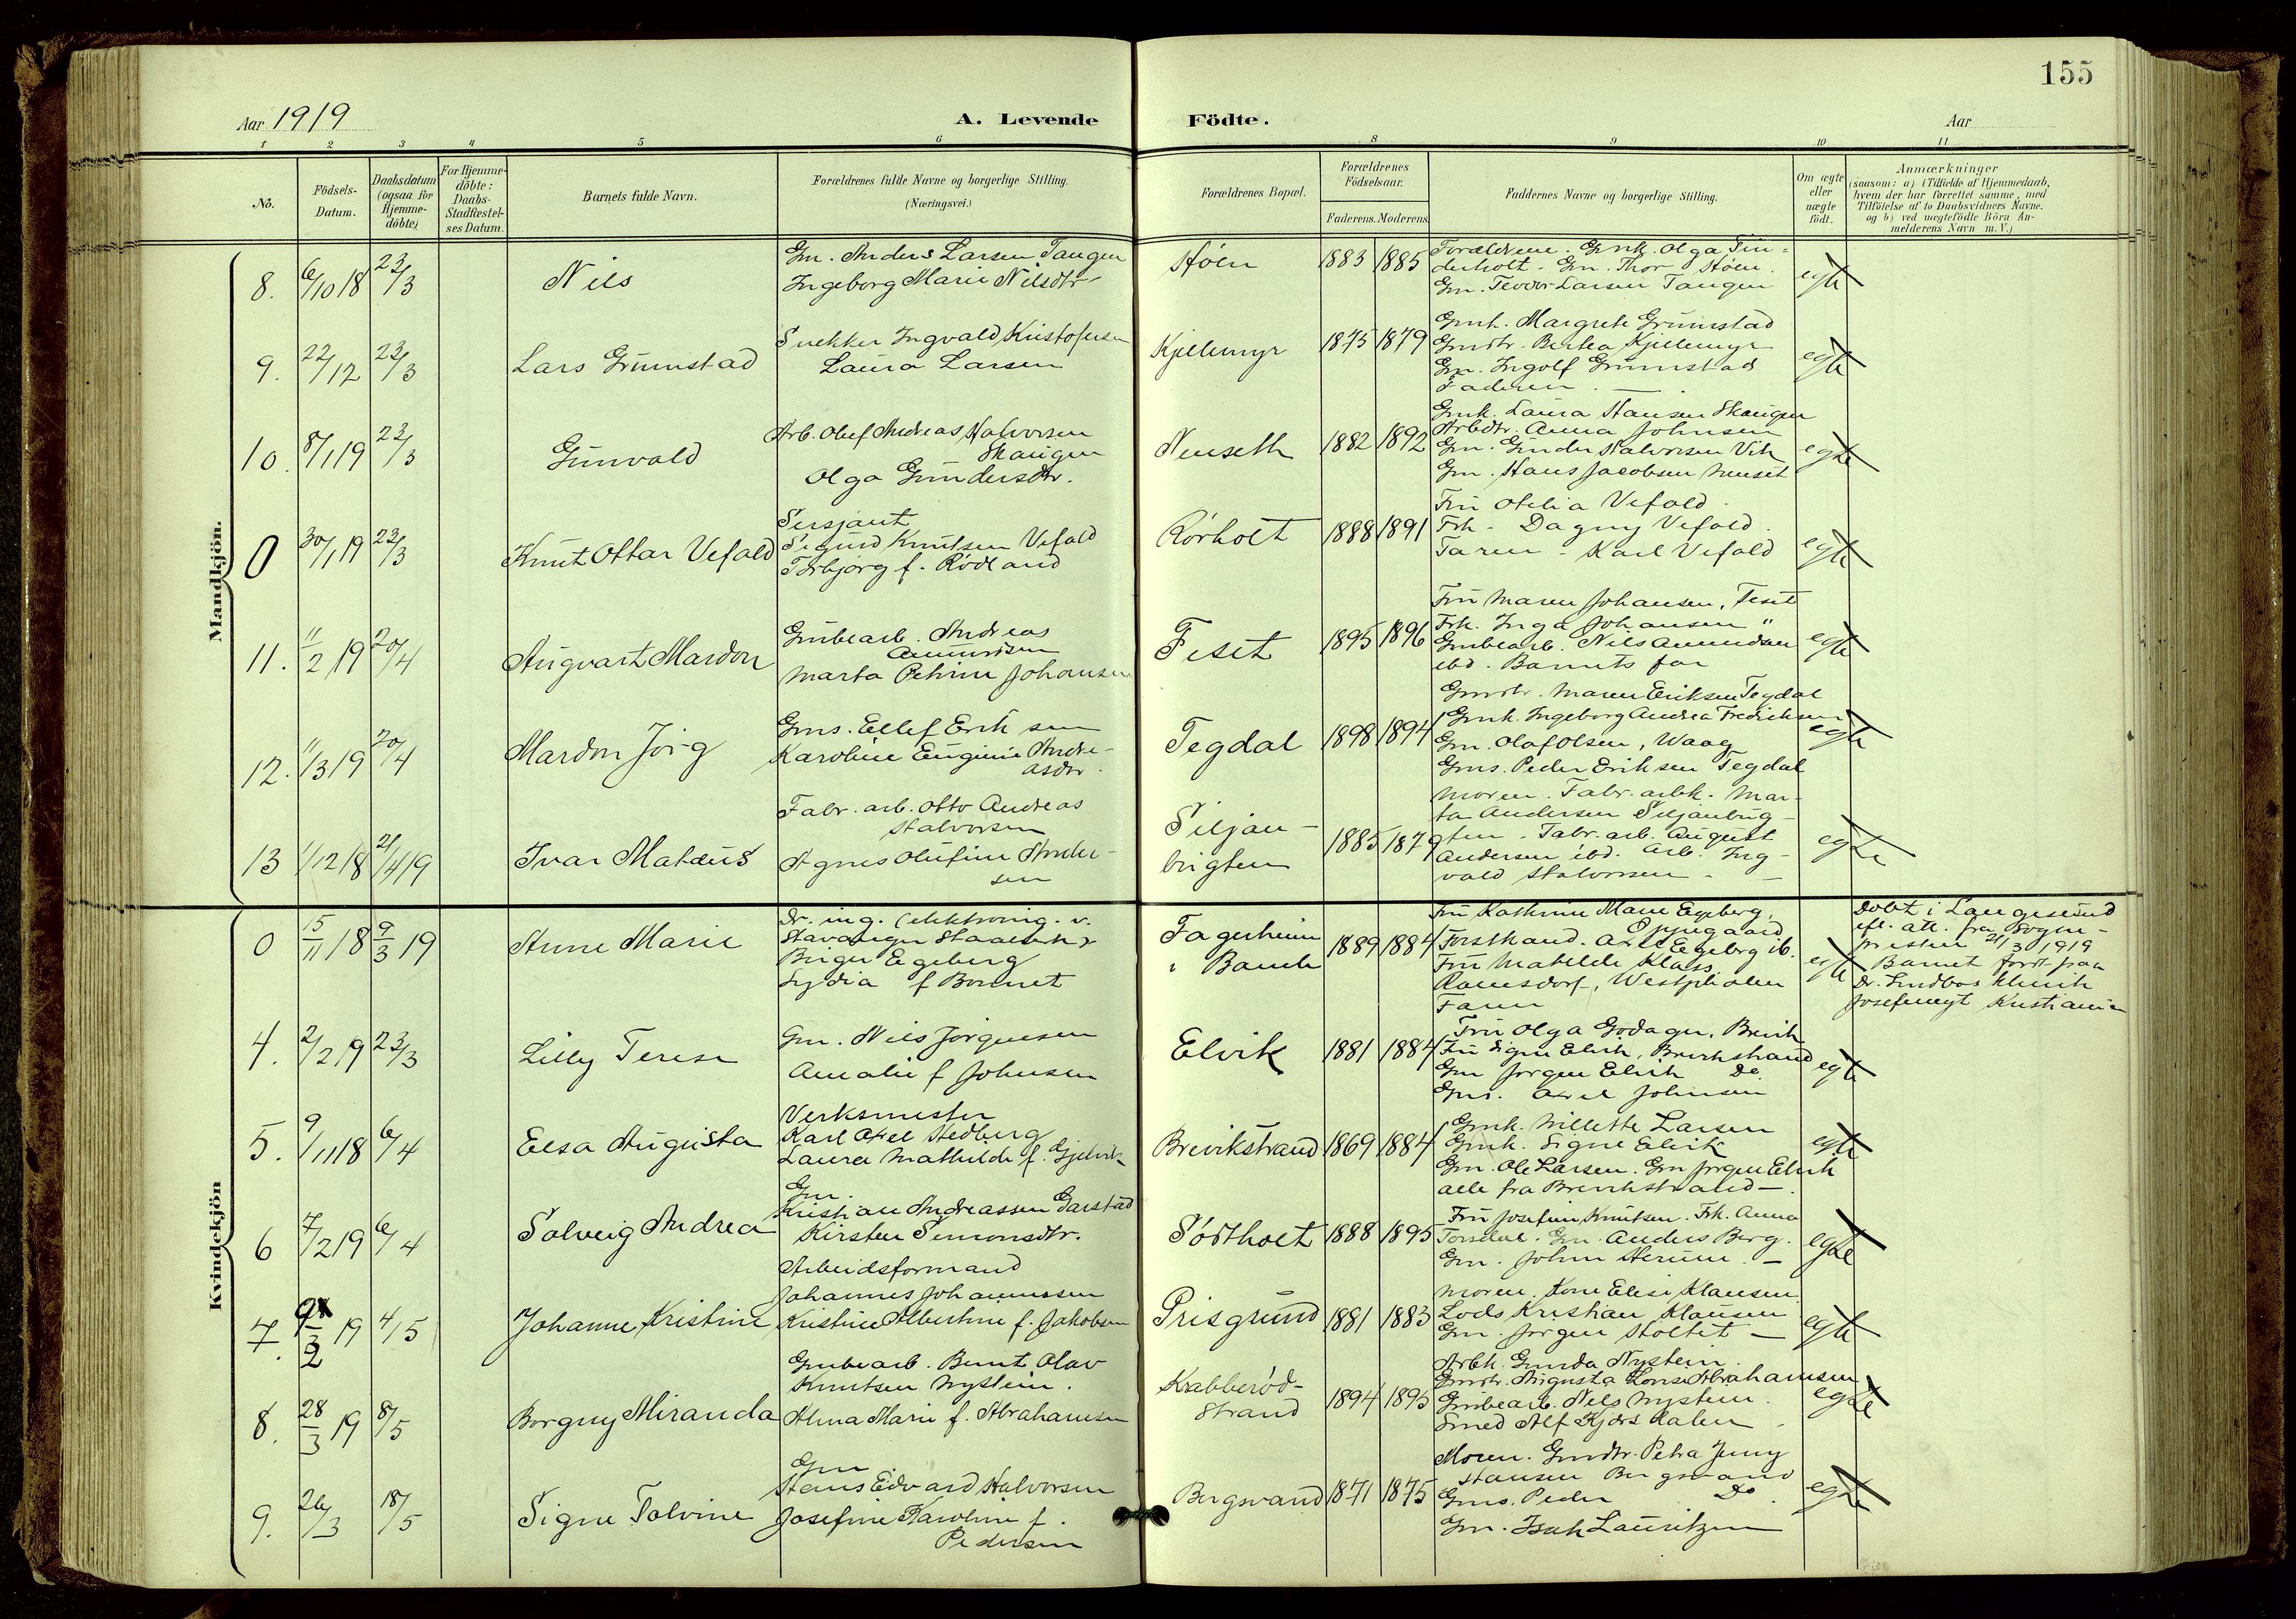 155
Aar 1919
A. Levende Födte.
Aar
1 2 3 4 5 6 8 9 10 11
No.
Födsels-
Datum.
Daabsdatum
(ogsaa for
Hjemme-
döbte)
For Hjemme-
döbte:
Daabs-
Stadfæstel-
ses Datum.
Barnets fulde Navn.
Forældrenes fulde Navne og borgerlige Stilling.
(Næringsvei.)
Forældrenes Bopæl.
Forældrenes
Födselsaar.
Faderens. Moderens.
Faddernes Navne og borgerlige Stilling.
Om ægte
eller
uægte
födt.
Anmærkninger
(saasom: a) i Tilfælde af Hjemmedaab,
hvem der har forrettet samme, med
Tilföielse af to Daabsvidners Navne.
og b) ved uægtefödte Börn An-
melderens Navn m. V.)
Mandkjön.
8. 6/10 18 23/3 Nils
Gm. Anders Larsen Tangen
Ingeborg Marie Nilsdtr
Støen 1883 1885
Forældrene. Gmk. Olga Tin-
derholt. Gm. Thor Støen.
Gm. Teodor Larsen Tangen
egte
9. 22/12 23/3 Lars Grumstad
Snekker Ingvald Kristofersen
Laura Larsen
Kjellemyr 1875 1879
Gmk. Margrete Grumstad
Gmdtr. Bertea Kjellemyr
Gm. Ingolf Grumstad
Faderen
egte
10. 8/1 19 23/3 Gunvald
Arb. Olef Andreas Halvorsen
Skaugen
Olga Gundersdtr.
Nenseth 1882 1892
Gmk. Laura Hansen Skaugen
Arbdtr. Anna Johnsen
Gm. Gunder Halvorsen Vik
Gm. Hans Jacobsen Nenset
egte
0 30/1 19 23/3 Knut Ottar Vefald
Sersjant
Sigurd Knutsen Vefald
Torbjørg f. Rødland
Rørholt 1888 1891
Fru Otelia Vefald.
Frk. Dagny Vefald.
Faren - Karl Vefald
egte
11. 11/2 19 20/4 Augvart Mardon
Grubearb. Andreas
Amundsen
Marta Petrine Johansen
Feset 1895 1896
Fru Maren Johansen, Feset
Frk. Inga Johansen "
Grubearb. Nils Amundsen
ibd. Barnets far
egte
12. 11/3 19 20/4 Mardon Jörg
Gms. Ellef Eriksen
Karoline Eugenie Andre-
asdtr.
Tegdal 1898 1894
Gmdtr. Maren Eriksen Tegdal
Gmk. Ingeborg Andrea Fredriksen
Gm. Olaf Olsen, Waag
Gms. Peder Eriksen Tegdal
egte
13 1/12 18 21/4 19 Ivar Matæus
Fabr. arb. Otto Andreas
Halvorsen
Agnes Olufine Ander-
sen
Siljan-
brigten 1885 1879
Moren. Fabr. arbk. Mar-
ta Andersen Siljanbrig-
ten. Fabr. arb. August
Andersen ibd. Arb. Ing-
vald Halvorsen
egte
Kvindekjön
0 15/11 18 9/3 19 Anne Marie
Dr. ing. (elektroing. v.
Stavanger Staalverk)
Birger Egeberg
Lydia f Bonnet
Fagerheim
i Bamle 1889 1884
Fru Kathrine Marie Egeberg,
Forstkand. Axel Egeberg ib.
Fru Matilde Klass
Ramsdorf, Westphalen
Faren
egte
Døbt i Langesund
eft. att. fra Sogne-
presten 21/3 1919
Barnet født paa
Josefinegt Kristiania
4. 2/2 19 23/3 Lilly Terese
Gm. Nils Jørgensen
Amalie f Johnsen
Elvik 1881 1884
Fru Olga Godager, Brevik
Fru Signe Elvik, Brevikstrand
Gm Jørgen Elvik Do
Gm. Axel Johnsen
egte
5. 9/11 18 6/4 Elsa Augusta
Verksmester
Karl Axel Hedberg
Laura Mathilde f. Gjelvik
Brevikstrand 1869 1884
Gmk. Millette Larsen
Gmk. Signe Elvik
Gm. Ole Larsen. Gm Jørgen Elvik
alle fra Brevikstrand
egte
6 7/2 19 6/4 Solveig Andrea
Gm.
Kristian Andreassen Garstad
Kirsten Simonsdtr.
Sødtholt 1888 1895
Fru Josefine Knutsen. Frk. Anna
Torsdal. Gm. Anders Berg.
Gm. John Herum
egte
7. 9/2 19 4/5 Johanne Kristine
Arbeidsformand
Johannes Johannessen
Kristine Albertine f. Jakobsen
Prisgrund 1881 1883
Moren. Kone Elise Klausen
Lods Kristian Klausen
Gm. Jørgen Stoltet
egte
8. 28/3 19 8/5 Borgny Miranda
Grubearb. Bernt Olav
Knutsen Nystein.
Alma Marie f. Abrahamsen
Krabberød-
strand 1894 1895
Arbk. Gunda Nystein.
Gmdtr. Augusta Lovise Abrahamsen
Grubearb. Nils Nystein.
Smed Alf Kjørsdalen
egte
9. 26/3 18/5 Signe Tolvine
Gm
Hans Edvard Halvorsen
Josefine Karoline f.
Pedersen
Bergsvand 1871 1875
Moren. Gmdtr. Petra Jenny
Hansen Bergsvand
Gms. Peder Do
Gm. Isak Lauritzen
egte